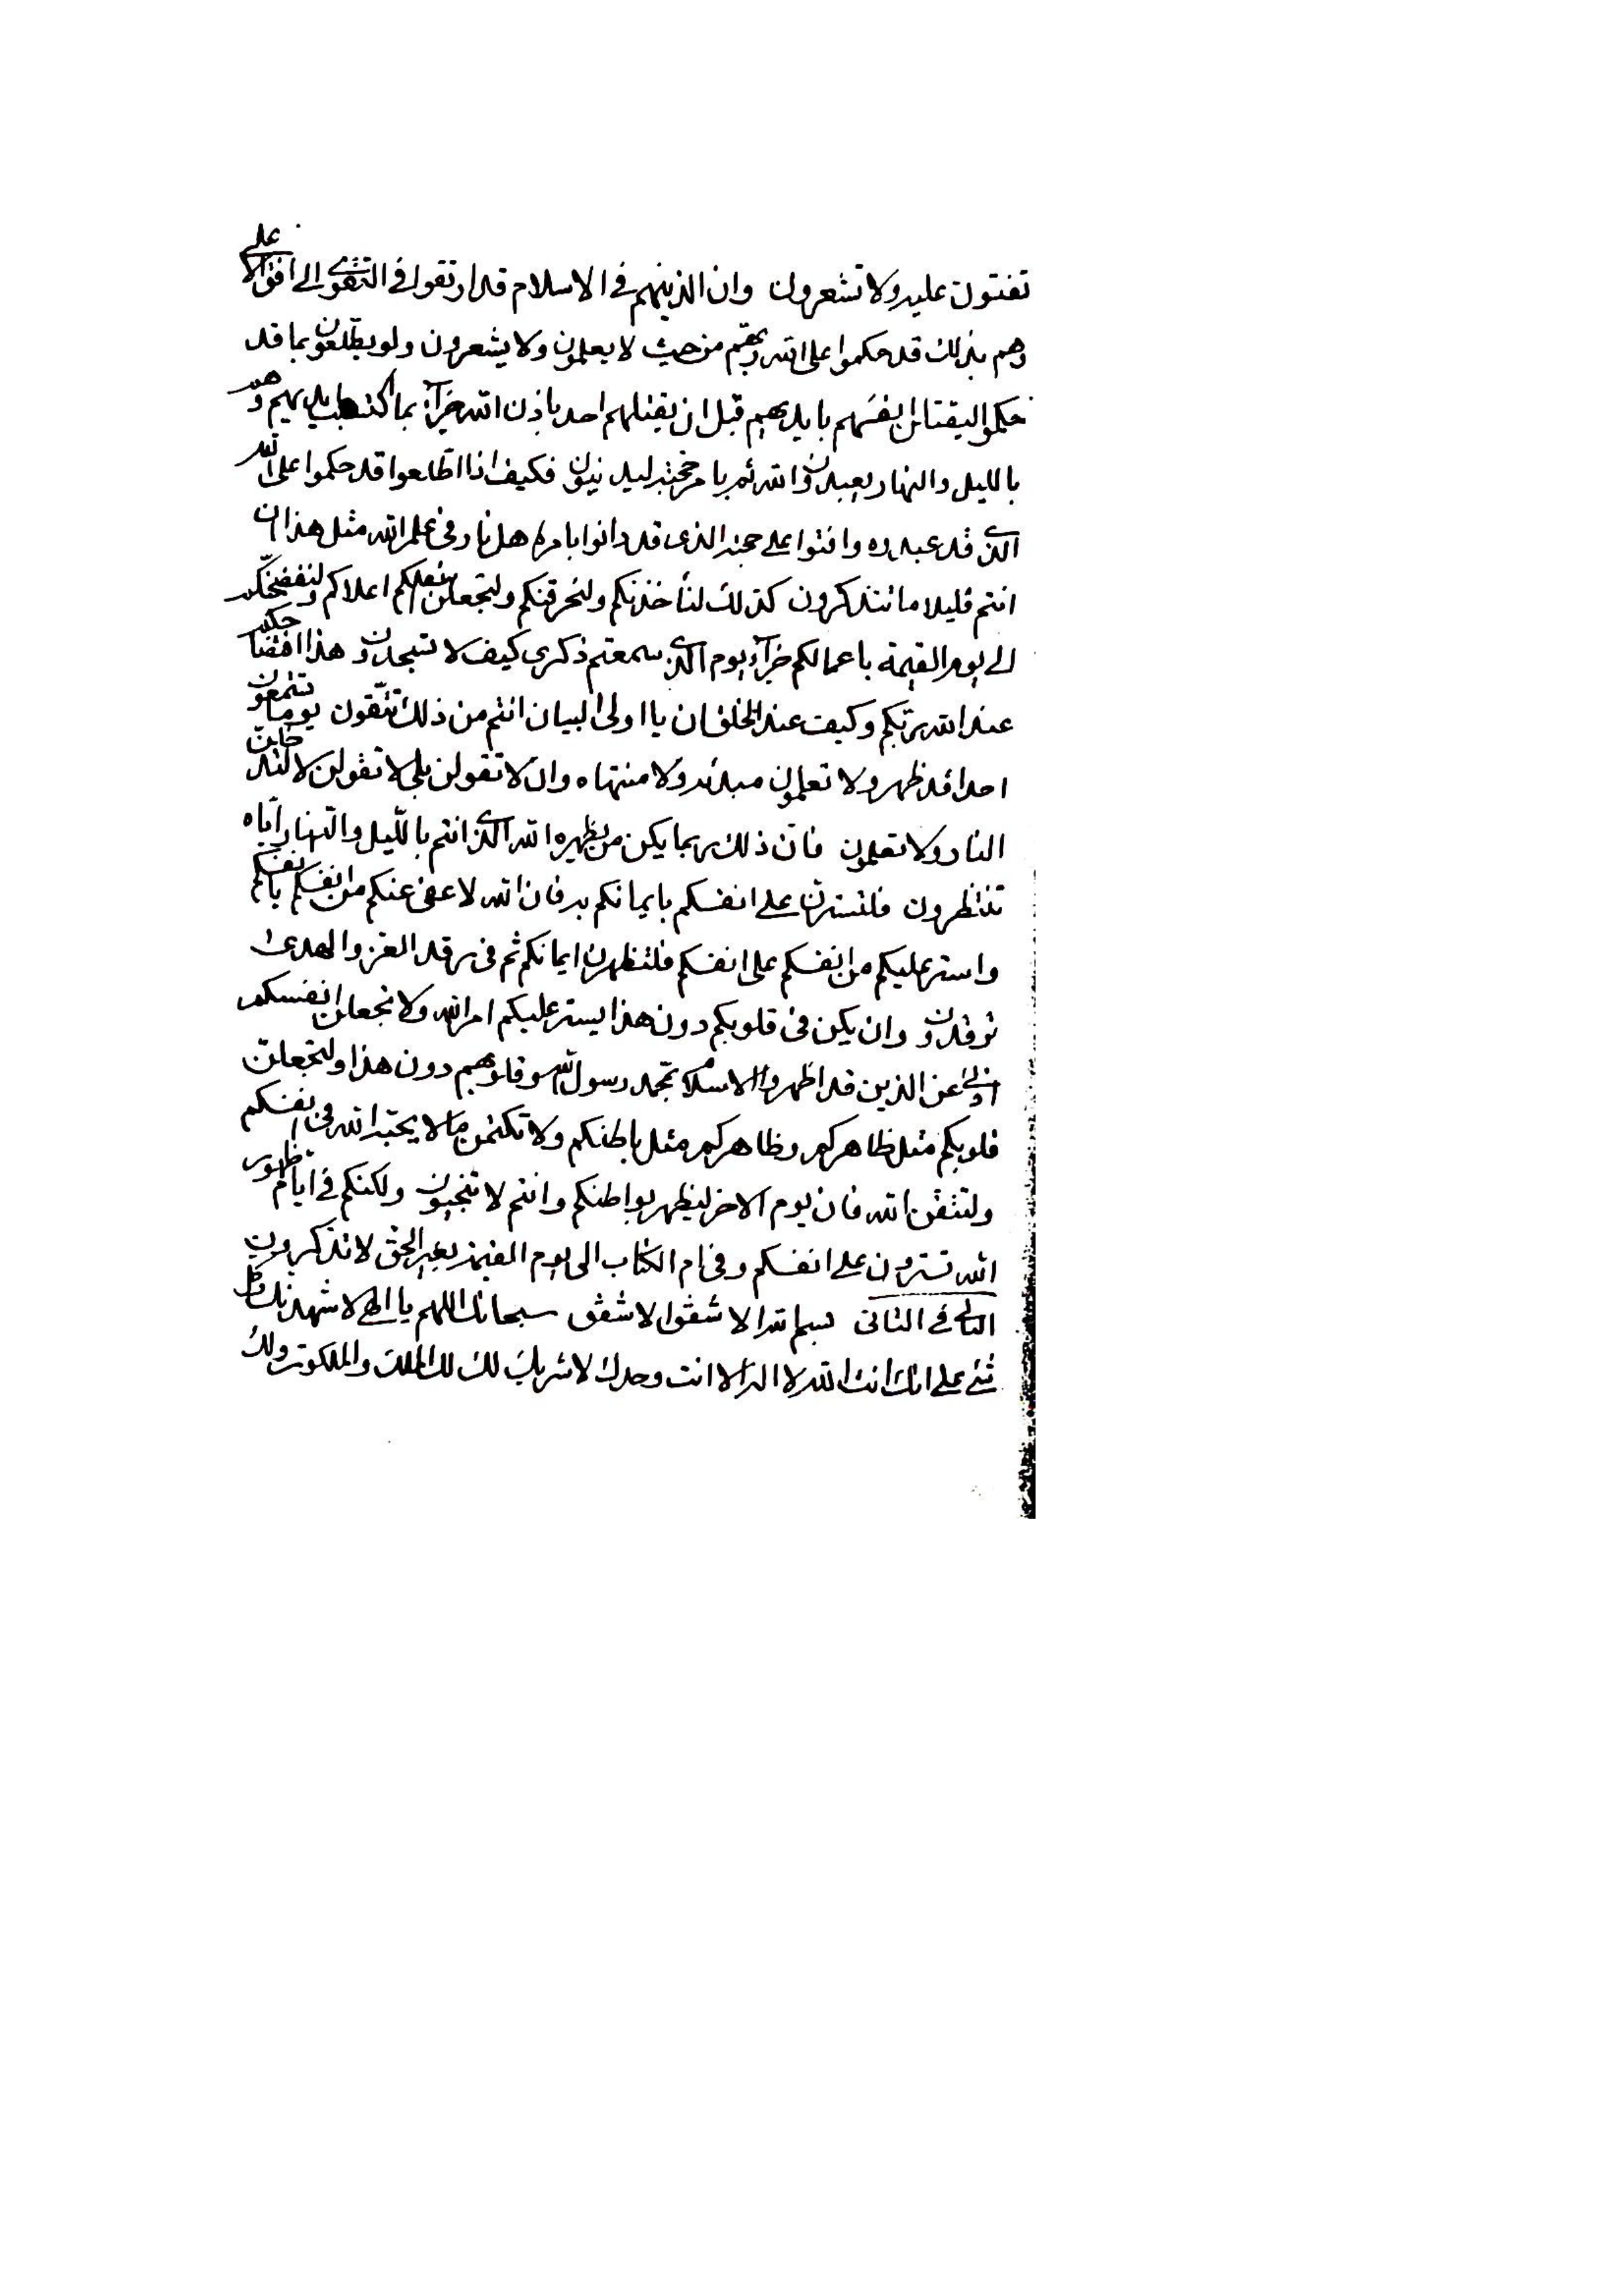 تفتون عليه ولا تشعرون وان الذينهم في الاسلام قد ارتقوا في التقوى الى افق الاعلى
وهم بذلك قد حكموا على الله ربهم من حيث لا يعلمون ولا يشعرون ولو يطلعون بما قد
حكموا ليقتلن انفسهم بايديهم قبل ان يقتلهم احد باذن الله جزآء بما اكتسبت ايديهم وهم
بالليل والنهار يعبدون الله ثم بامر حجته ليدينون فكيف اذا اطلعوا قد حكموا على الله
الذي قد عبدوه وافتوا على حجة الذي قد دانوا بامره هل نار في علم الله مثل هذا ان
انتم قليلا ما تتذكرون كذلك لنأخذنكم ولنحرقنكم ولنجعلن اعلاكم ولنفضحنكم
الى يوم القيمة باعمالكم جزآء يوم الذي سمعتم ذكري كيف لا تسجدون هذا افضاحكم
عند الله ربكم وكيف عند الخلق ان يا اولى البيان انتم من ذلك تتقون يوما تسمعون
احدا قد ظهر ولا تعلمون مبدئه ولا منتهاه وان لا تقولن بلى لا تقولن لا لتدخلن
النار ولا تعلمون فان ذلك ربما يكن من يظهره الله الذي انتم بالليل والنهار اياه
تنتظرون فلتسترن على انفسكم بايمانكم به فان الله لا عفى عنكم من انفسكم بانفسكم
واستر عليكم من انفسكم على انفسكم فلتظهرن ايمانكم ثم في مرقد العز والهدى
ترقدون وان يكن في قلوبكم دون هذا يستر عليكم امر الله ولا تجعلن انفسكم
ادنى عن الذين قد اظهروا الاسلام بمحمد رسول الله وقلوبهم دون هذا ولتجعلن
قلوبكم مثل ظاهركم وظاهركم مثل باطنكم ولا تكتمن ما لا يحبه الله في انفسكم
ولتتقن الله فان يوم الاخر ليظهر بواطنكم وانتم لا تنجبون ولكنكم في ايام ظهور
الله تسترون على انفسكم وفي ام الكتاب الى يوم القيمة بغير الحق لا تذكرون
الثاني في الثاني بسم الله الاشفق الاشفق سبحانك اللهم يا الهي لاشهدنك وكل
شئ على انك انت الله لا اله الا انت وحدك لا شريك لك لك الملك والملكوت ولك